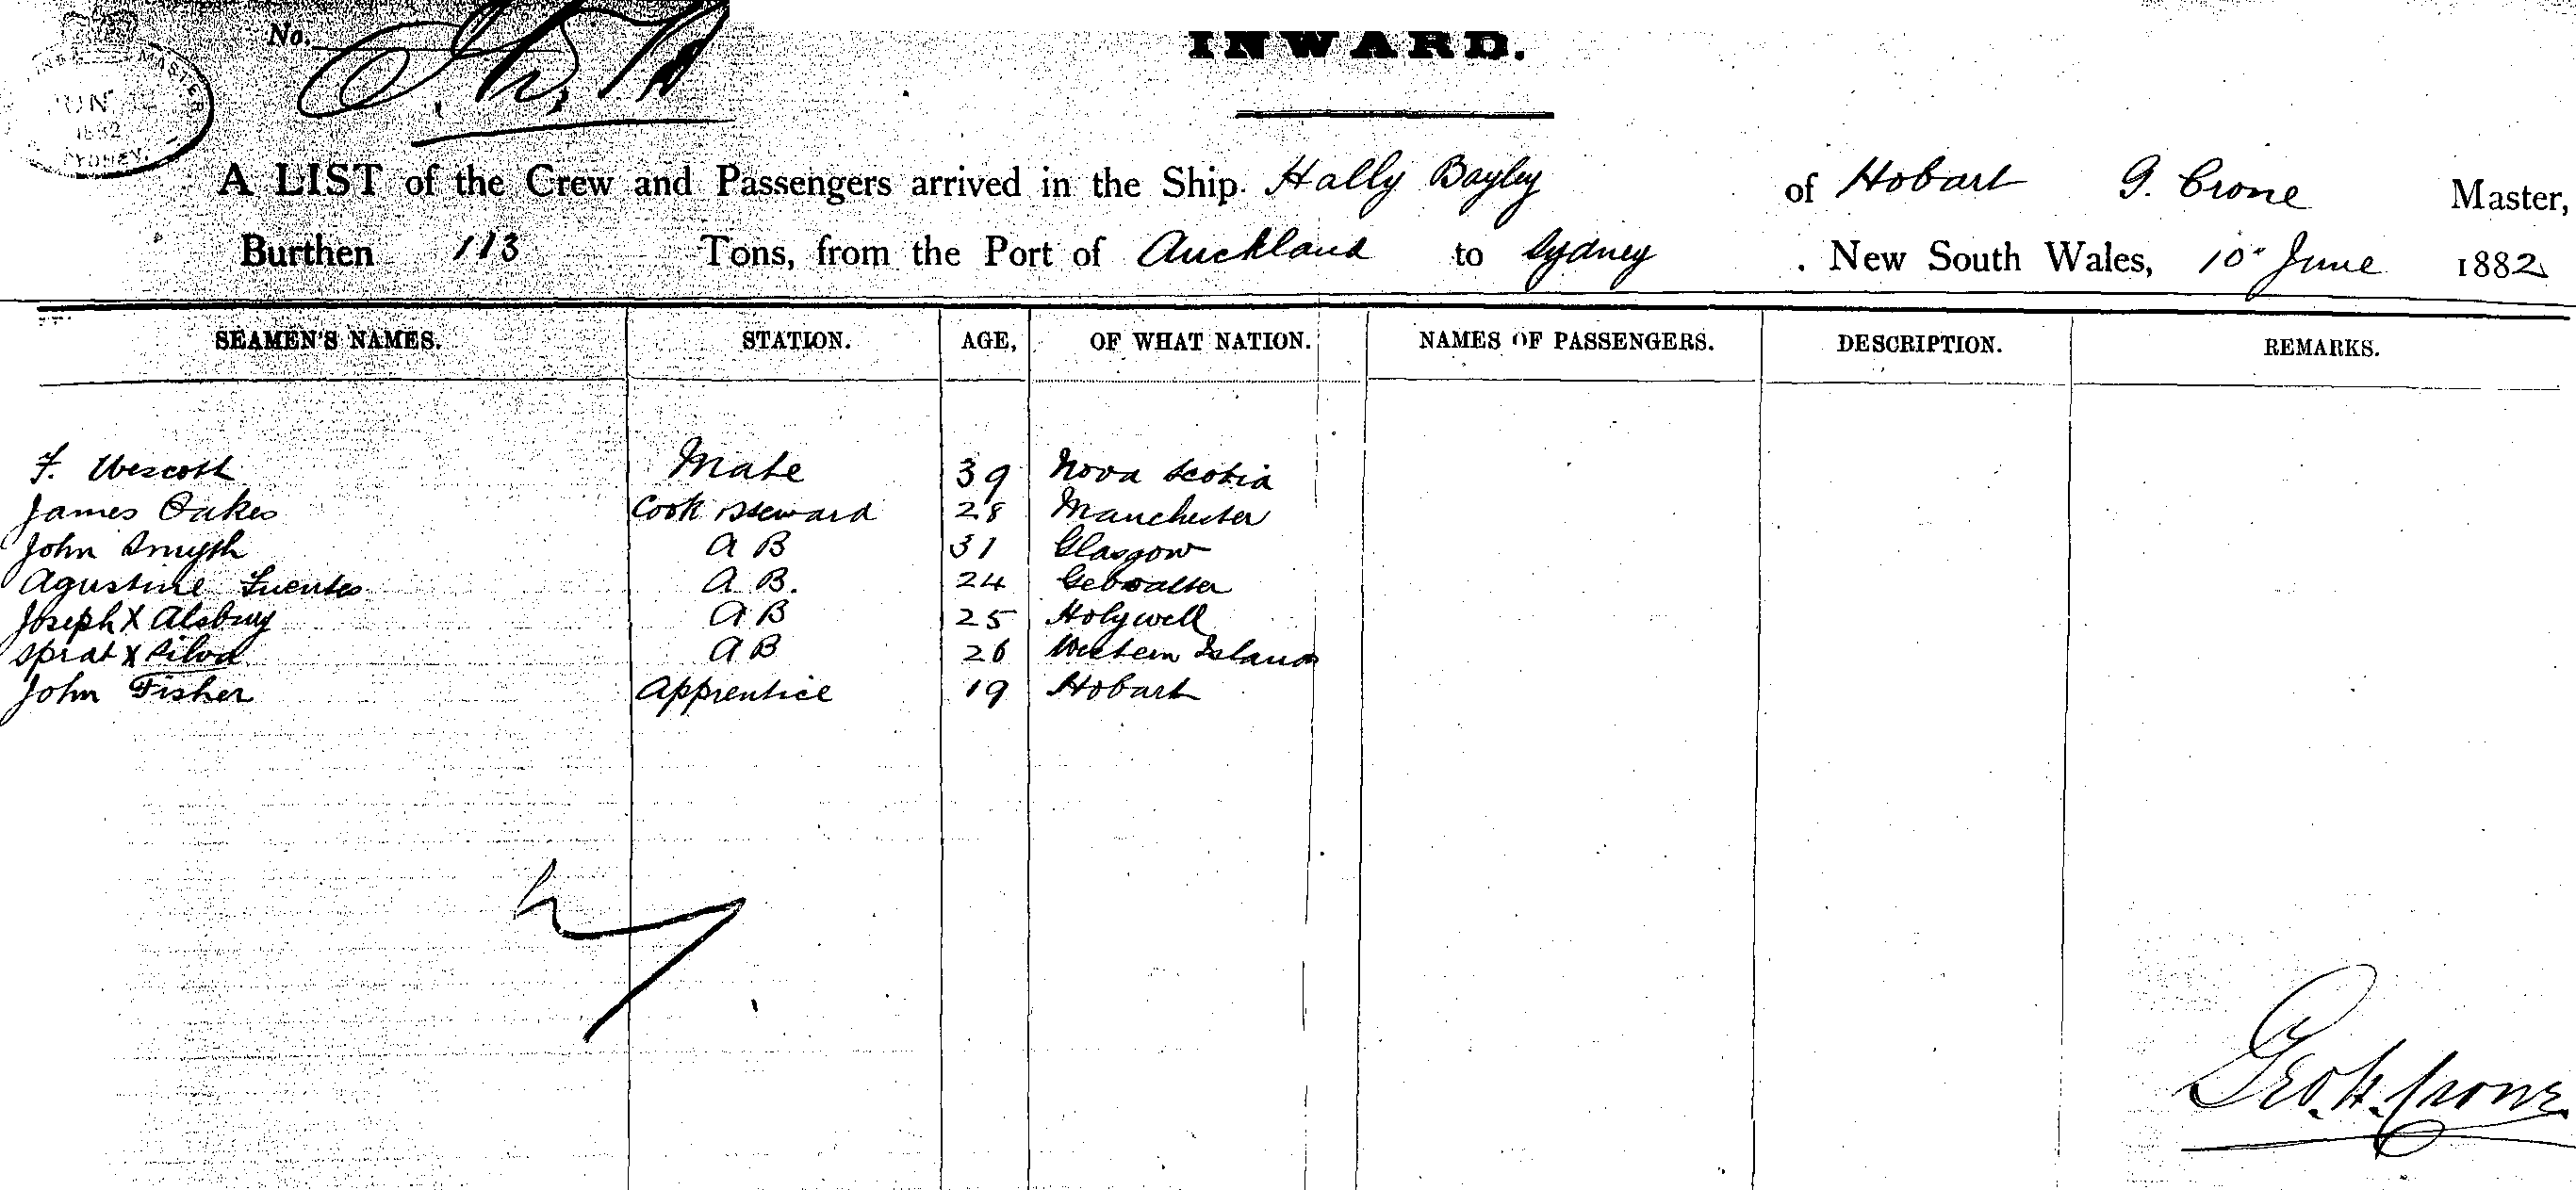 No.
INWARD.
MASTER
JUN
1882
SYDNEY
A LIST of the Crew and Passengers arrived in the Ship Hally Bayley of Hobart G. Crone Master,
Burthen 113 Tons, from the Port of Auckland to Sydney . New South Wales, 10 June 1882
SEAMEN'S NAMES. STATION. AGE, OF WHAT NATION. NAMES OF PASSENGERS. DESCRIPTION. REMARKS.
F. Wescott Mate 39 Nova Scotia
James Oakes Cook Steward 28 Manchester
John Smyth A B 31 Glasgow
Agustine Fuentes A B. 24 Gebralter
Joseph X Alsbury A B 25 Holywell
Sprat X Silva A B 26 Western Islands
John Fisher Apprentice 19 Hobart
Geo. H. Crone